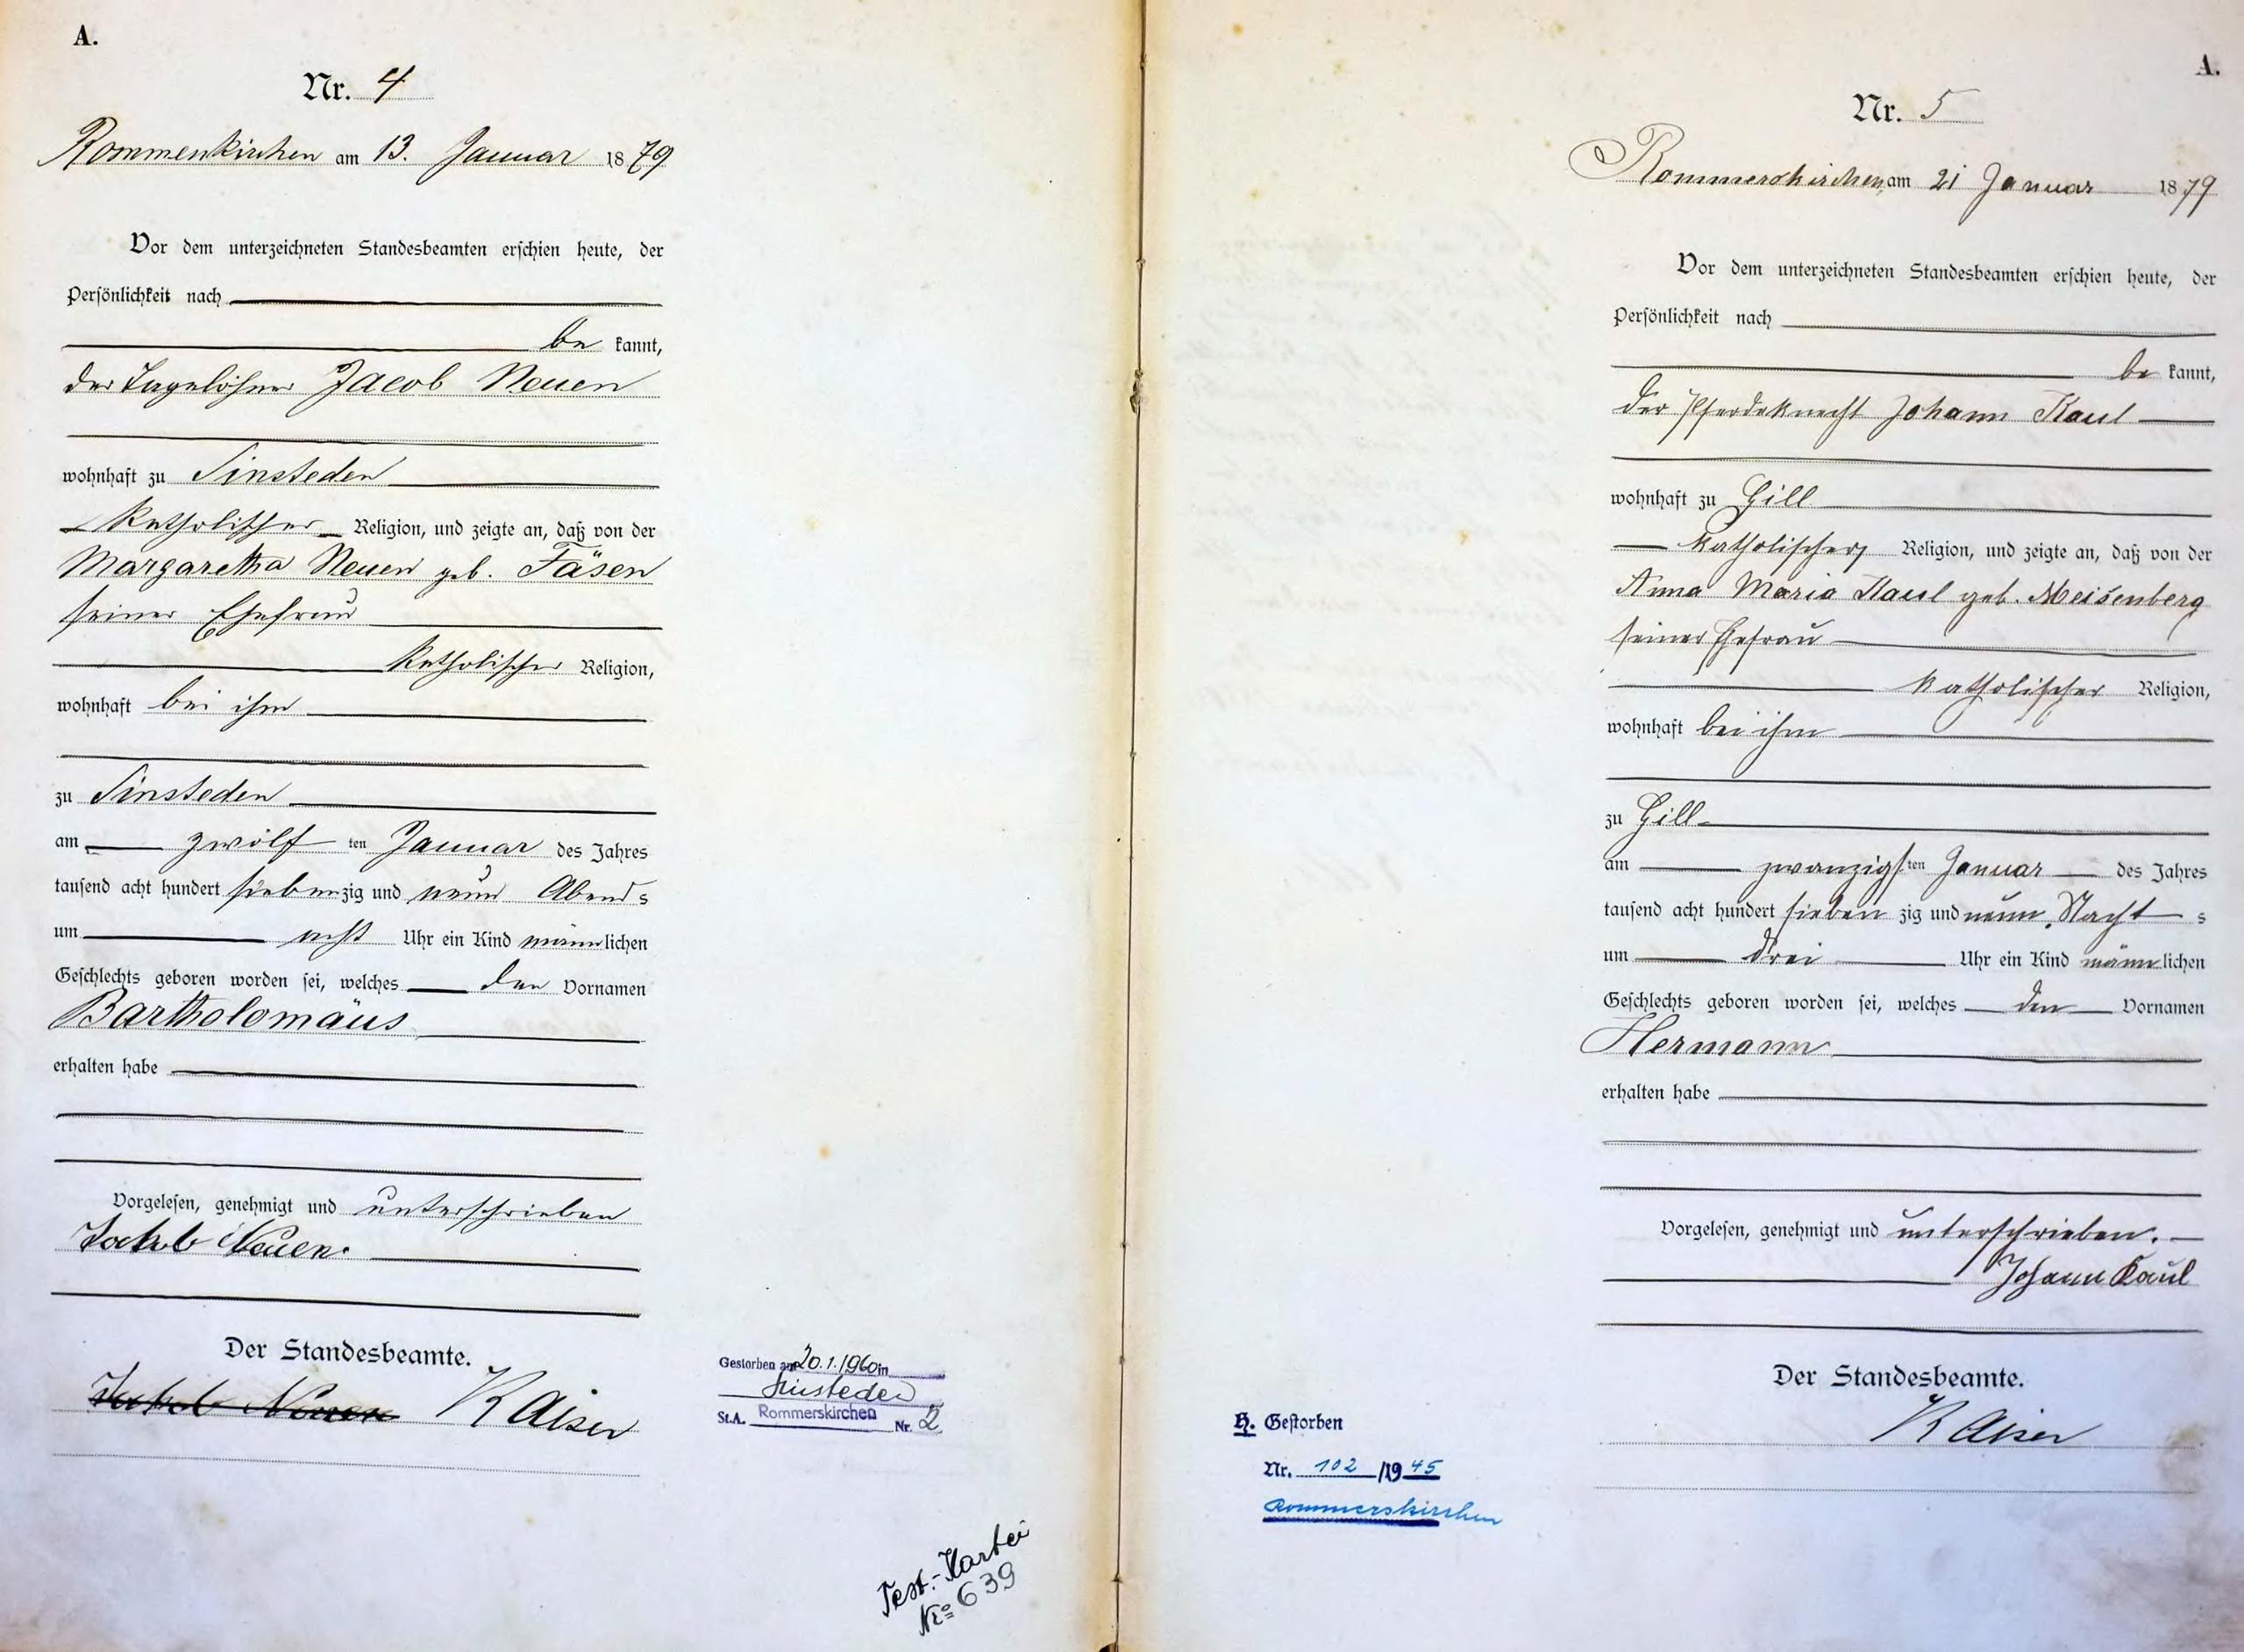 A.
Nr. 4
Rommerskirchen am 13. Januar 1879
Vor dem unterzeichneten Standesbeamten erschien heute, der
Persönlichkeit nach
be kannt,
der Tagelöhner Jacob Neuen
wohnhaft zu Sinsteden
katholischer Religion, und zeigte an, daß von der
Margaretha Neuen geb. Fäsen
seiner Ehefrau
katholischer Religion,
wohnhaft bei ihm
zu Sinsteden
am zwölf ten Januar des Jahres
tausend acht hundert siebenzig und neun Abends
um acht Uhr ein Kind männlichen
Geschlechts geboren worden sei, welches den Vornamen
Bartholomäus
erhalten habe
Vorgelesen, genehmigt und unterschrieben
Jakob Neuen.
Der Standesbeamte.
Jakob Neuen Kaiser
Gestorben am 20.1.1960 in
Sinsteden
St.A. Rommerskirchen Nr. 2
Test.-Kartei
No 639
A.
Nr. 5
Rommerskirchen am 21 Januar 1879
Vor dem unterzeichneten Standesbeamten erschien heute, der
Persönlichkeit nach
be kannt,
der Pferdeknecht Johann Kaul
wohnhaft zu Gill
katholischer Religion, und zeigte an, daß von der
Anna Maria Kaul geb. Meisenberg
seiner Ehefrau
katholischer Religion,
wohnhaft bei ihm
zu Gill
am zwanzigsten Januar des Jahres
tausend acht hundert sieben zig und neun, Nachts
um drei Uhr ein Kind männlichen
Geschlechts geboren worden sei, welches den Vornamen
Hermann
erhalten habe
Vorgelesen, genehmigt und unterschrieben.
Johann Kaul
Der Standesbeamte.
Kaiser
H. Gestorben
Nr. 102/1945
Rommerskirchen